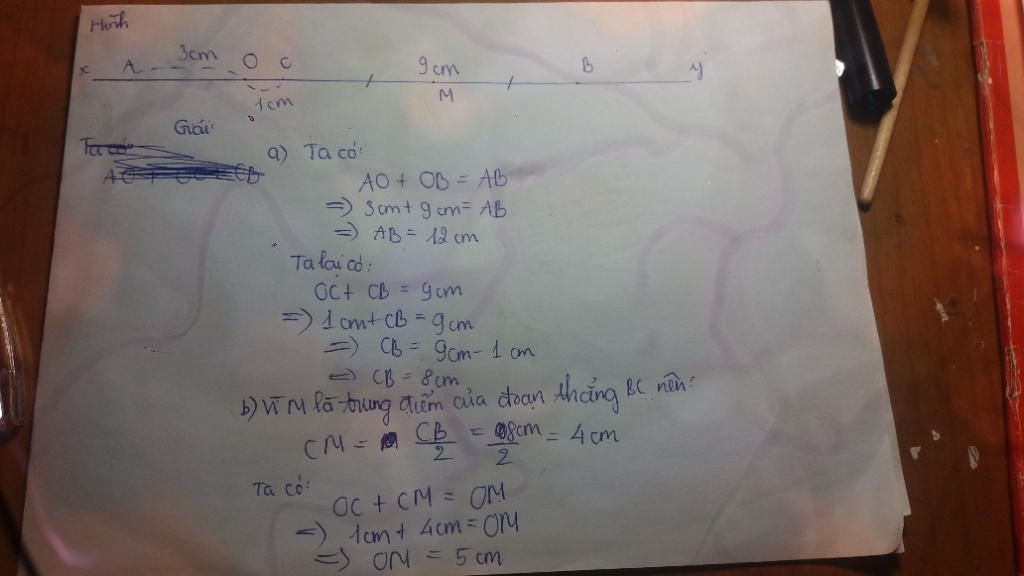 Hình
3cm O C 9cm B
x A y
1cm M
Giải:
Ta có:
AO + OC CB
a) Ta có:
AO + OB = AB
=) 3cm + 9cm = AB
=) AB = 12cm
Ta lại có:
OC + CB = 9cm
=) 1cm + CB = 9cm
=) CB = 9cm - 1cm
=) CB = 8cm
b) Vì M là trung điểm của đoạn thẳng BC nên:
CM = CB/2 = 8cm/2 = 4cm
Ta có:
OC + CM = OM
=) 1cm + 4cm = OM
=) OM = 5cm